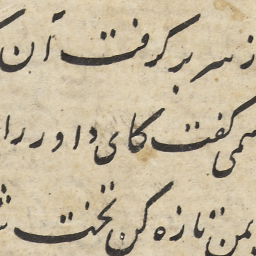 ز سر بر گرفت آن
همی گفت کای داور را
یمن تازه کن تخت